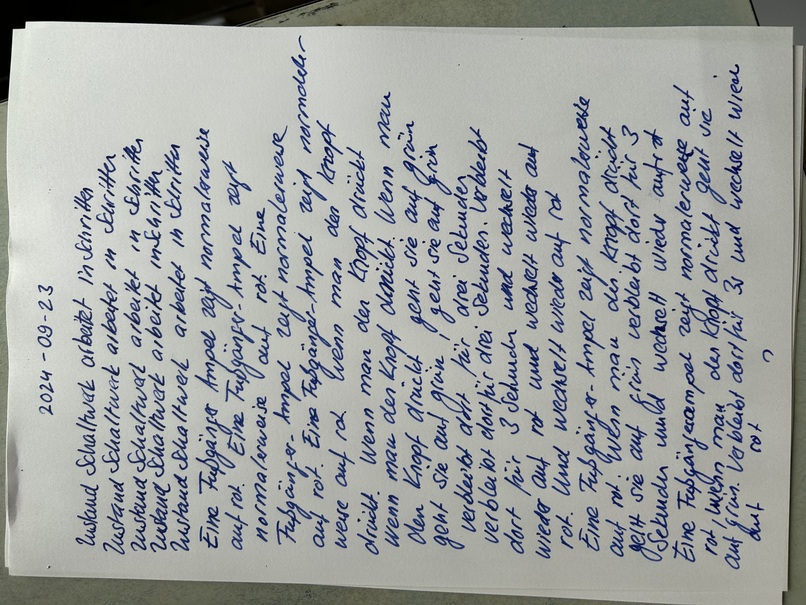 2024-09-23
Zustand Schaltwerk arbeitet in Schritten
Zustand Schaltwerk arbeitet in Schritten
Zustand Schaltwerk arbeitet in Schritten
Zustand Schaltwerk arbeitet in Schritten
Zustand Schaltwerk arbeitet in Schritten
Eine Fußgänger Ampel zeigt normalerweise
auf rot. Eine Fußgänger-Ampel zeigt
normalerweise auf rot. Eine
Fußgänger-Ampel zeigt normalerweise
auf rot. Eine Fußgänger-Ampel zeigt
weise auf rot. Wenn man den Knopf
drückt. Wenn man den Knopf drückt
Wenn man den Knopf drückt. Wenn man
den Knopf drückt geht sie auf grün
geht sie auf grün, geht sie auf grün
verbleibt dort für drei Sekunden
verbleibt dort für drei Sekunden. Verbleibt
dort für 3 Sekunden und wechselt
wieder auf rot und wechselt wieder auf
rot. Und wechselt wieder auf rot
Eine Fußgänger-Ampel zeigt normalerweise
auf rot. Wenn man den Knopf drückt
geht sie auf grün verbleibt dort für 3
Sekunden und wechselt wieder auf rot
Eine Fußgängerampel zeigt normalerweise auf
rot, wenn man den Knopf drückt geht sie
auf grün. Verbleibt dort für 3s und wechselt wieder
auf rot